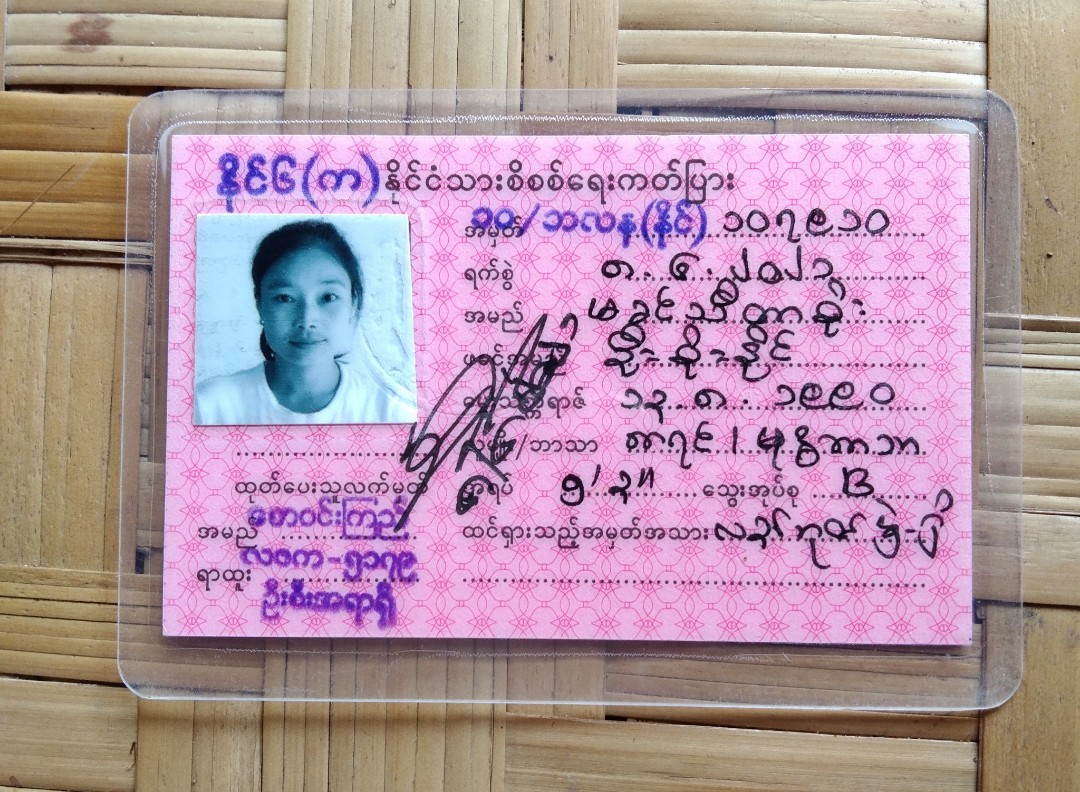 နိုင်ငံ(က) နိုင်ငံသားစိစစ်ရေးကတ်ပြား
အမှတ် ၁၀/ဘလန(နိုင်) ၁၀၇၉၁၀
ရက်စွဲ ၈.၆.၂၀၂၁
အမည်
ဖခင်အမည်
မွေးသက္ကရာဇ် ၁၃.၈.၁၉၉၀
လူမျိုး/ဘာသာ ကရင် / ဗုဒ္ဓဘာသာ
အရပ် ၅' ၃" သွေးအုပ်စု B
ထင်ရှားသည့်အမှတ်အသား
ထုတ်ပေးသူလက်မှတ်
အမည် ဇော်ဝင်းကြည်
ရာထူး လဝက-၅၁၇၉
ဦးစီးအရာရှိ